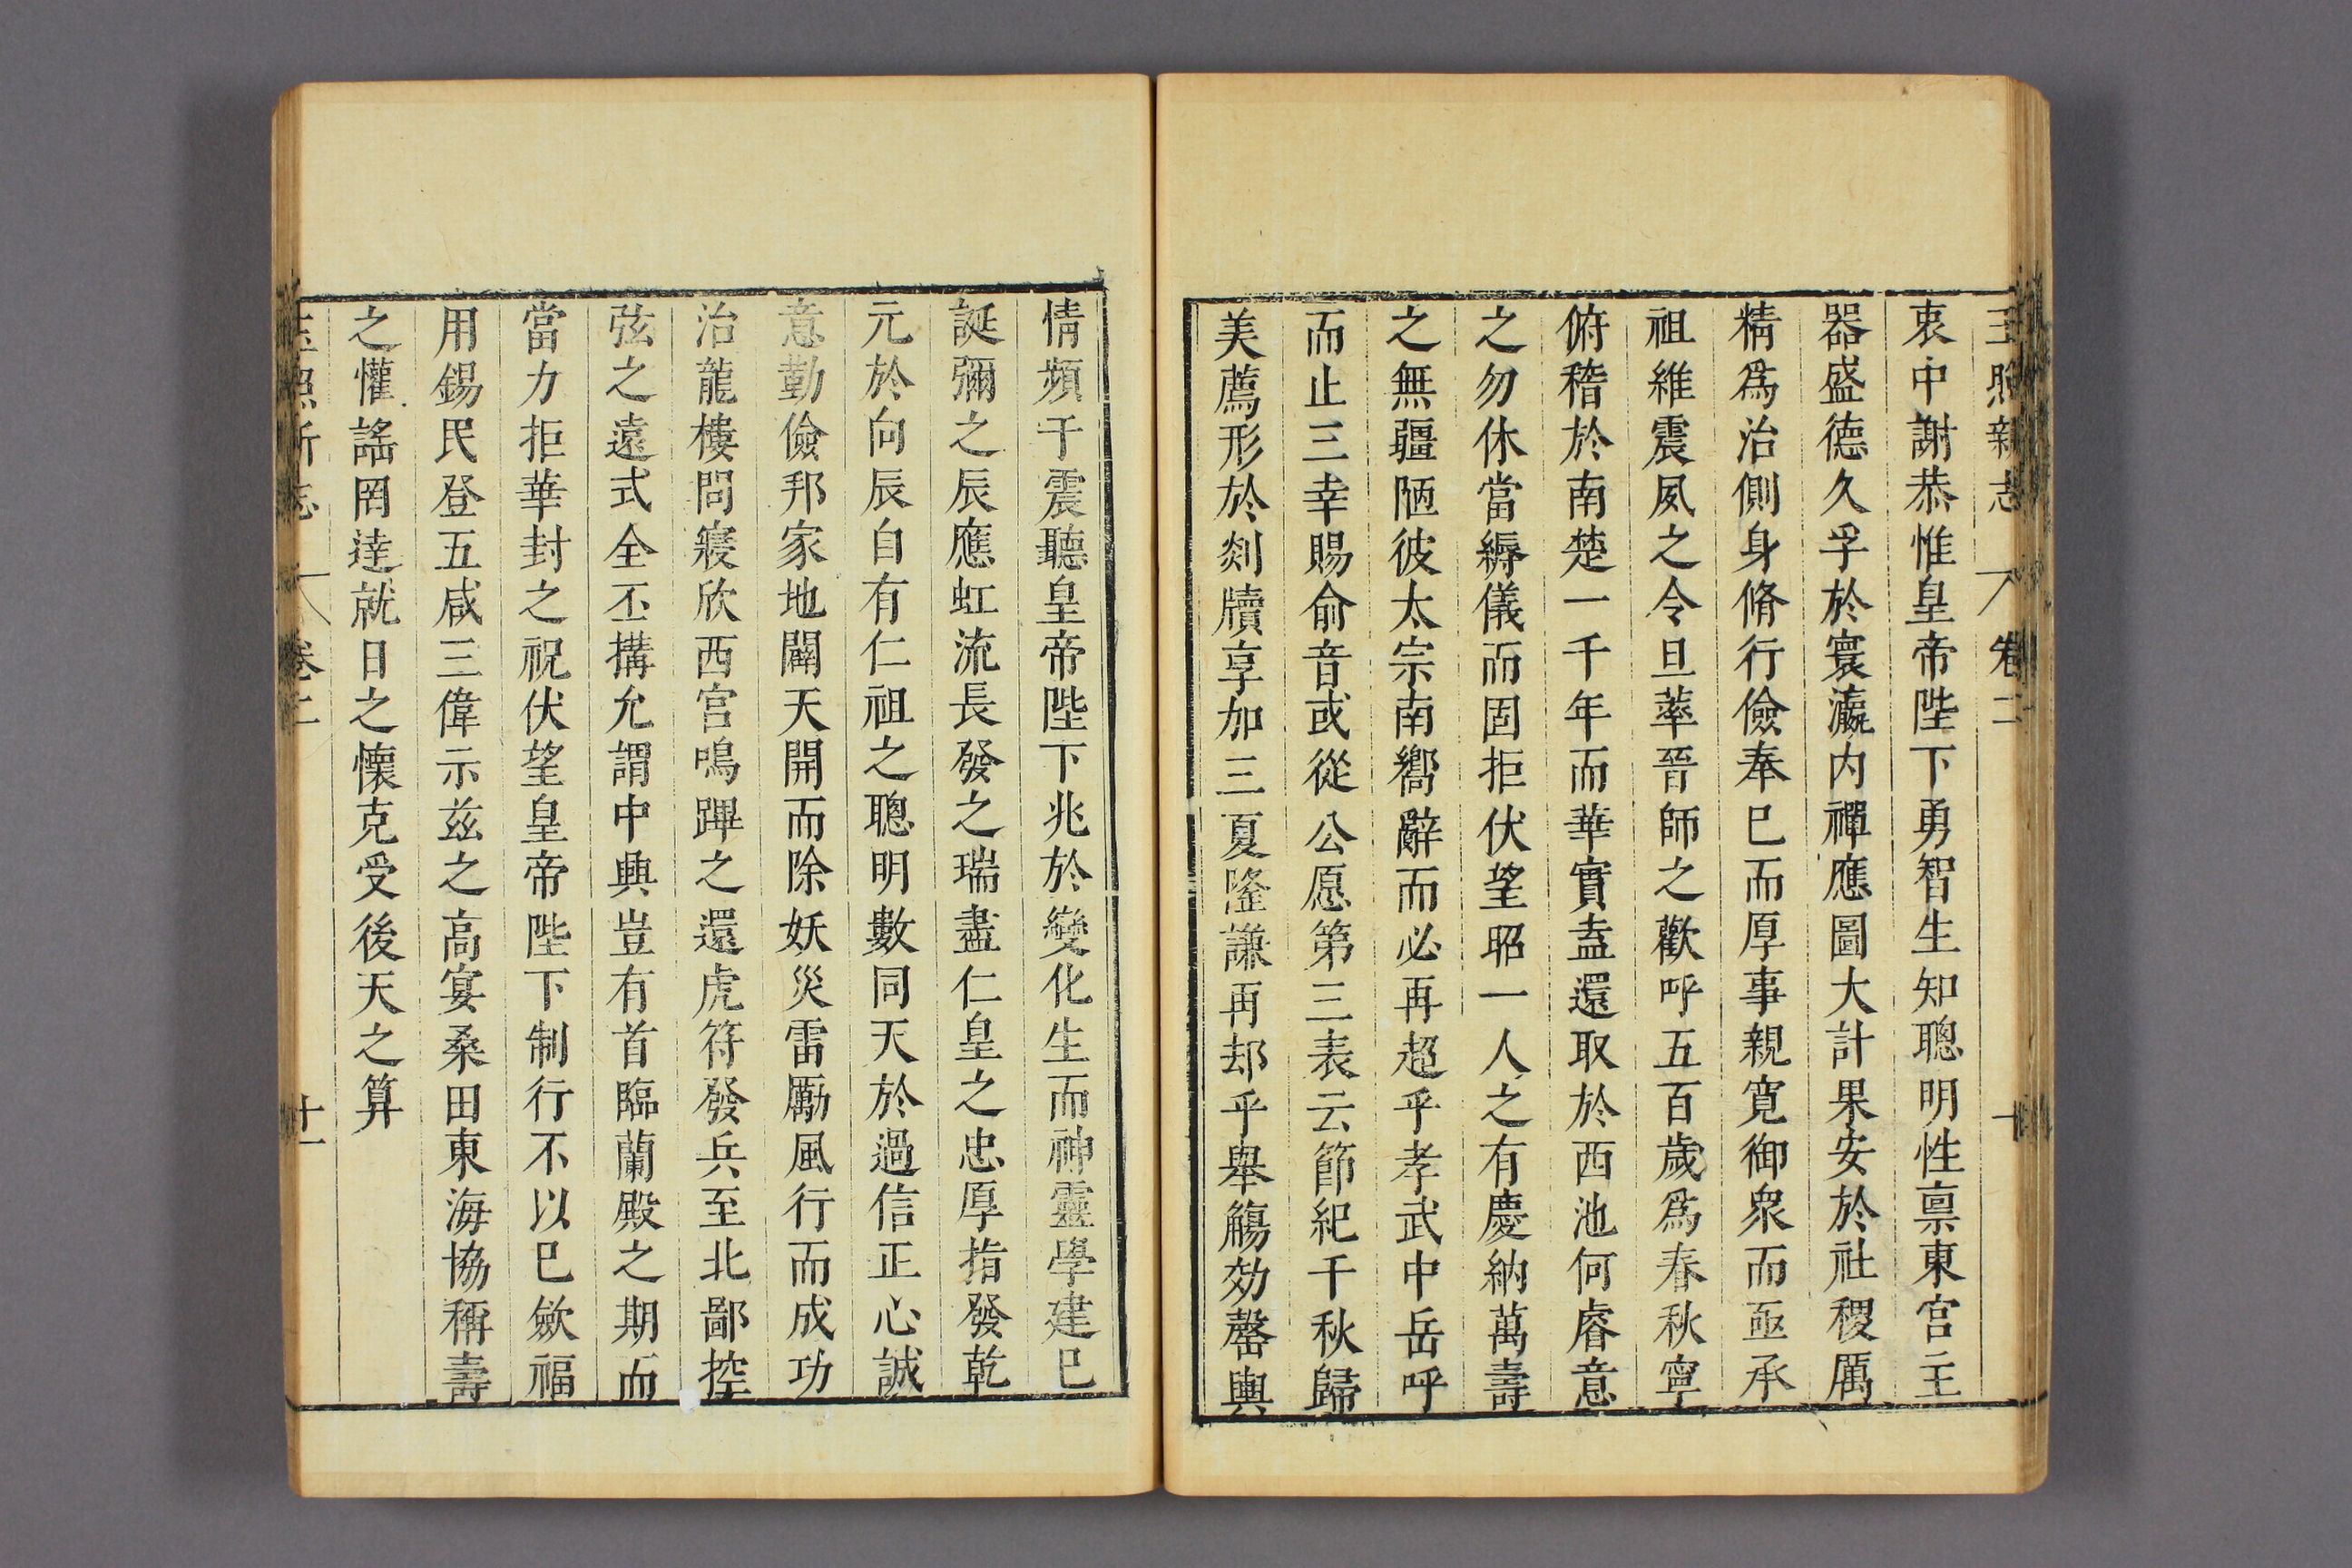 玉照新志 卷二 十
衷中謝恭惟皇帝陛下勇智生知聰明性禀東宫主
器盛德久孚於寰瀛内禪應圖大計果安於社稷厲
精爲治側身脩行儉奉巳而厚事親寛御衆而亟承
祖維震夙之令旦萃晉師之歡呼五百歲爲春秋寧
俯稽於南楚一千年而華實盍還取於西池何睿意
之勿休當縟儀而固拒伏望昭一人之有慶納萬壽
之無疆陋彼太宗南嚮辭而必再超乎孝武中岳呼
而止三幸賜俞音或從公愿第三表云節紀千秋歸
美薦形於剡牘享加三夏隆謙再却乎舉觴効罄輿
情頻干震聽皇帝陛下兆於變化生而神靈學建巳
誕彌之辰應虹流長發之瑞盡仁皇之忠厚指發乾
元於向辰自有仁祖之聰明數同天於過信正心誠
意勤儉邦家地闢天開而除妖災雷勵風行而成功
治龍樓問寢欣西宫鳴蹕之還虎符發兵至北鄙控
弦之遠式全丕搆允謂中興豈有首臨蘭殿之期而
當力拒華封之祝伏望皇帝陛下制行不以巳歛福
用錫民登五咸三偉示兹之高宴桑田東海協稱壽
之懽謠罔逹就日之懷克受後天之算
玉照新志 卷二 十一